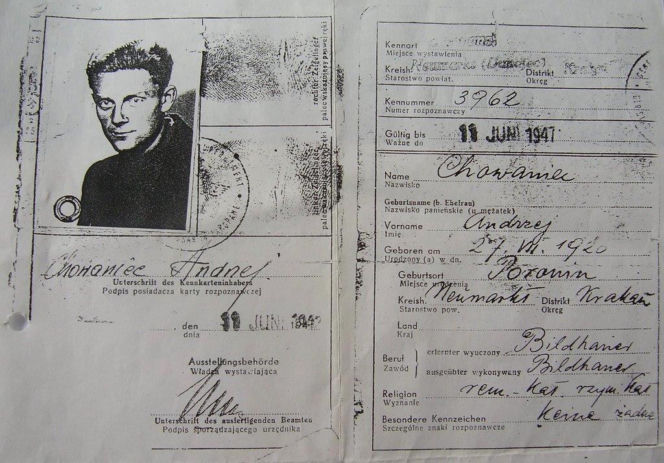 rechter Zeigefinger
palec wskazujący prawej ręki
linker Zeigefinger
palec wskazujący lewej ręki
Chowaniec Andrzej
Unterschrift des Kennkarteninhabers
Podpis posiadacza karty rozpoznawczej
den
dnia
11 JUNI 1942
Ausstellungsbehörde
Władza wystawiająca
Unterschrift des ausfertigenden Beamten
Podpis sporządzającego urzędnika
Kennort
Miejsce wystawienia
Kreish.
Starostwo powiat.
Neumarkt (Dunajec)
Distrikt
Okręg
Kennummer
Numer rozpoznawczy
3962
Gültig bis
Ważne do
11 JUNI 1947
Name
Nazwisko
Chowaniec
Geburtsname (b. Ehefrau)
Nazwisko panieńskie (u mężatek)
Vorname
Imię
Andrzej
Geboren am
Urodzony (a) w dn.
1920
Geburtsort
Miejsce urodzenia
Poronin
Kreish.
Starostwo pow.
Neumarkt
Distrikt
Okręg
Krakau
Land
Kraj
Beruf
Zawód
erlernter wyuczony
Bildhauer
ausgeübter wykonywany
Bildhauer
Religion
Wyznanie
röm.-kat. rzym. kat
Besondere Kennzeichen
Szczególne znaki rozpoznawcze
keine żadne